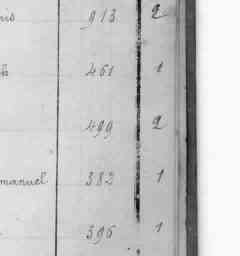 913 2
461 1
499 2
manuel 382 1
396 1